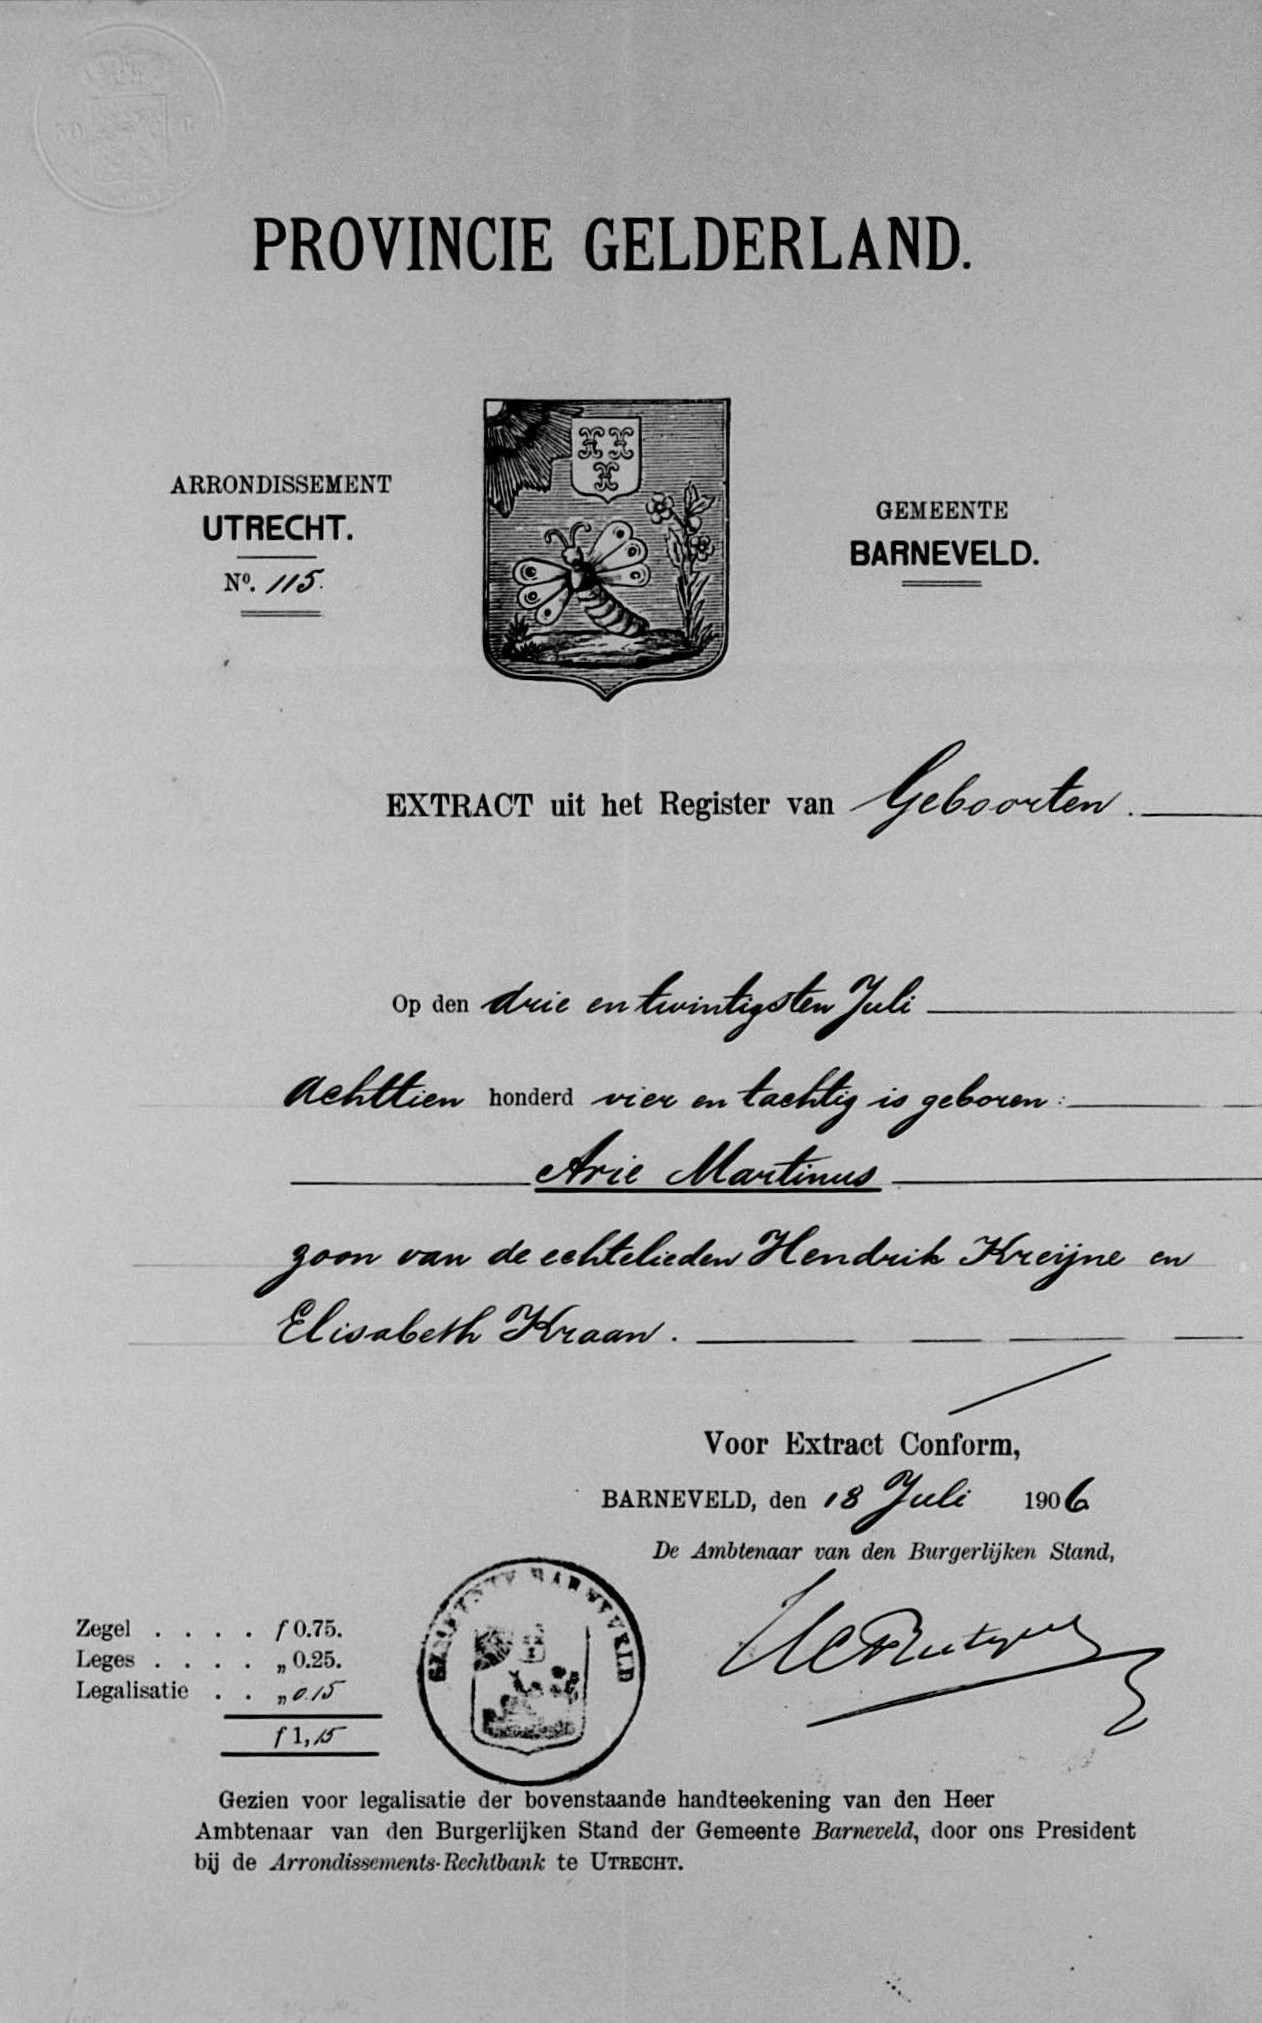 PROVINCIE GELDERLAND.
ARRONDISSEMENT
UTRECHT.
Nº. 115.
GEMEENTE
BARNEVELD.
EXTRACT uit het Register van Geboorten.
Op den drie en twintigsten Juli
achttien honderd vier en tachtig is geboren:
Arie Martinus
zoon van de echtelieden Hendrik Kreijne en
Elisabeth Kraan.
Voor Extract Conform,
BARNEVELD, den 18 Juli 1906
De Ambtenaar van den Burgerlijken Stand,
GEMEENTE BARNEVELD
Zegel . . . . ƒ 0.75.
Leges . . . . „ 0.25.
Legalisatie . . „ 0.15
ƒ 1,15
Gezien voor legalisatie der bovenstaande handteekening van den Heer
Ambtenaar van den Burgerlijken Stand der Gemeente Barneveld, door ons President
bij de Arrondissements-Rechtbank te UTRECHT.